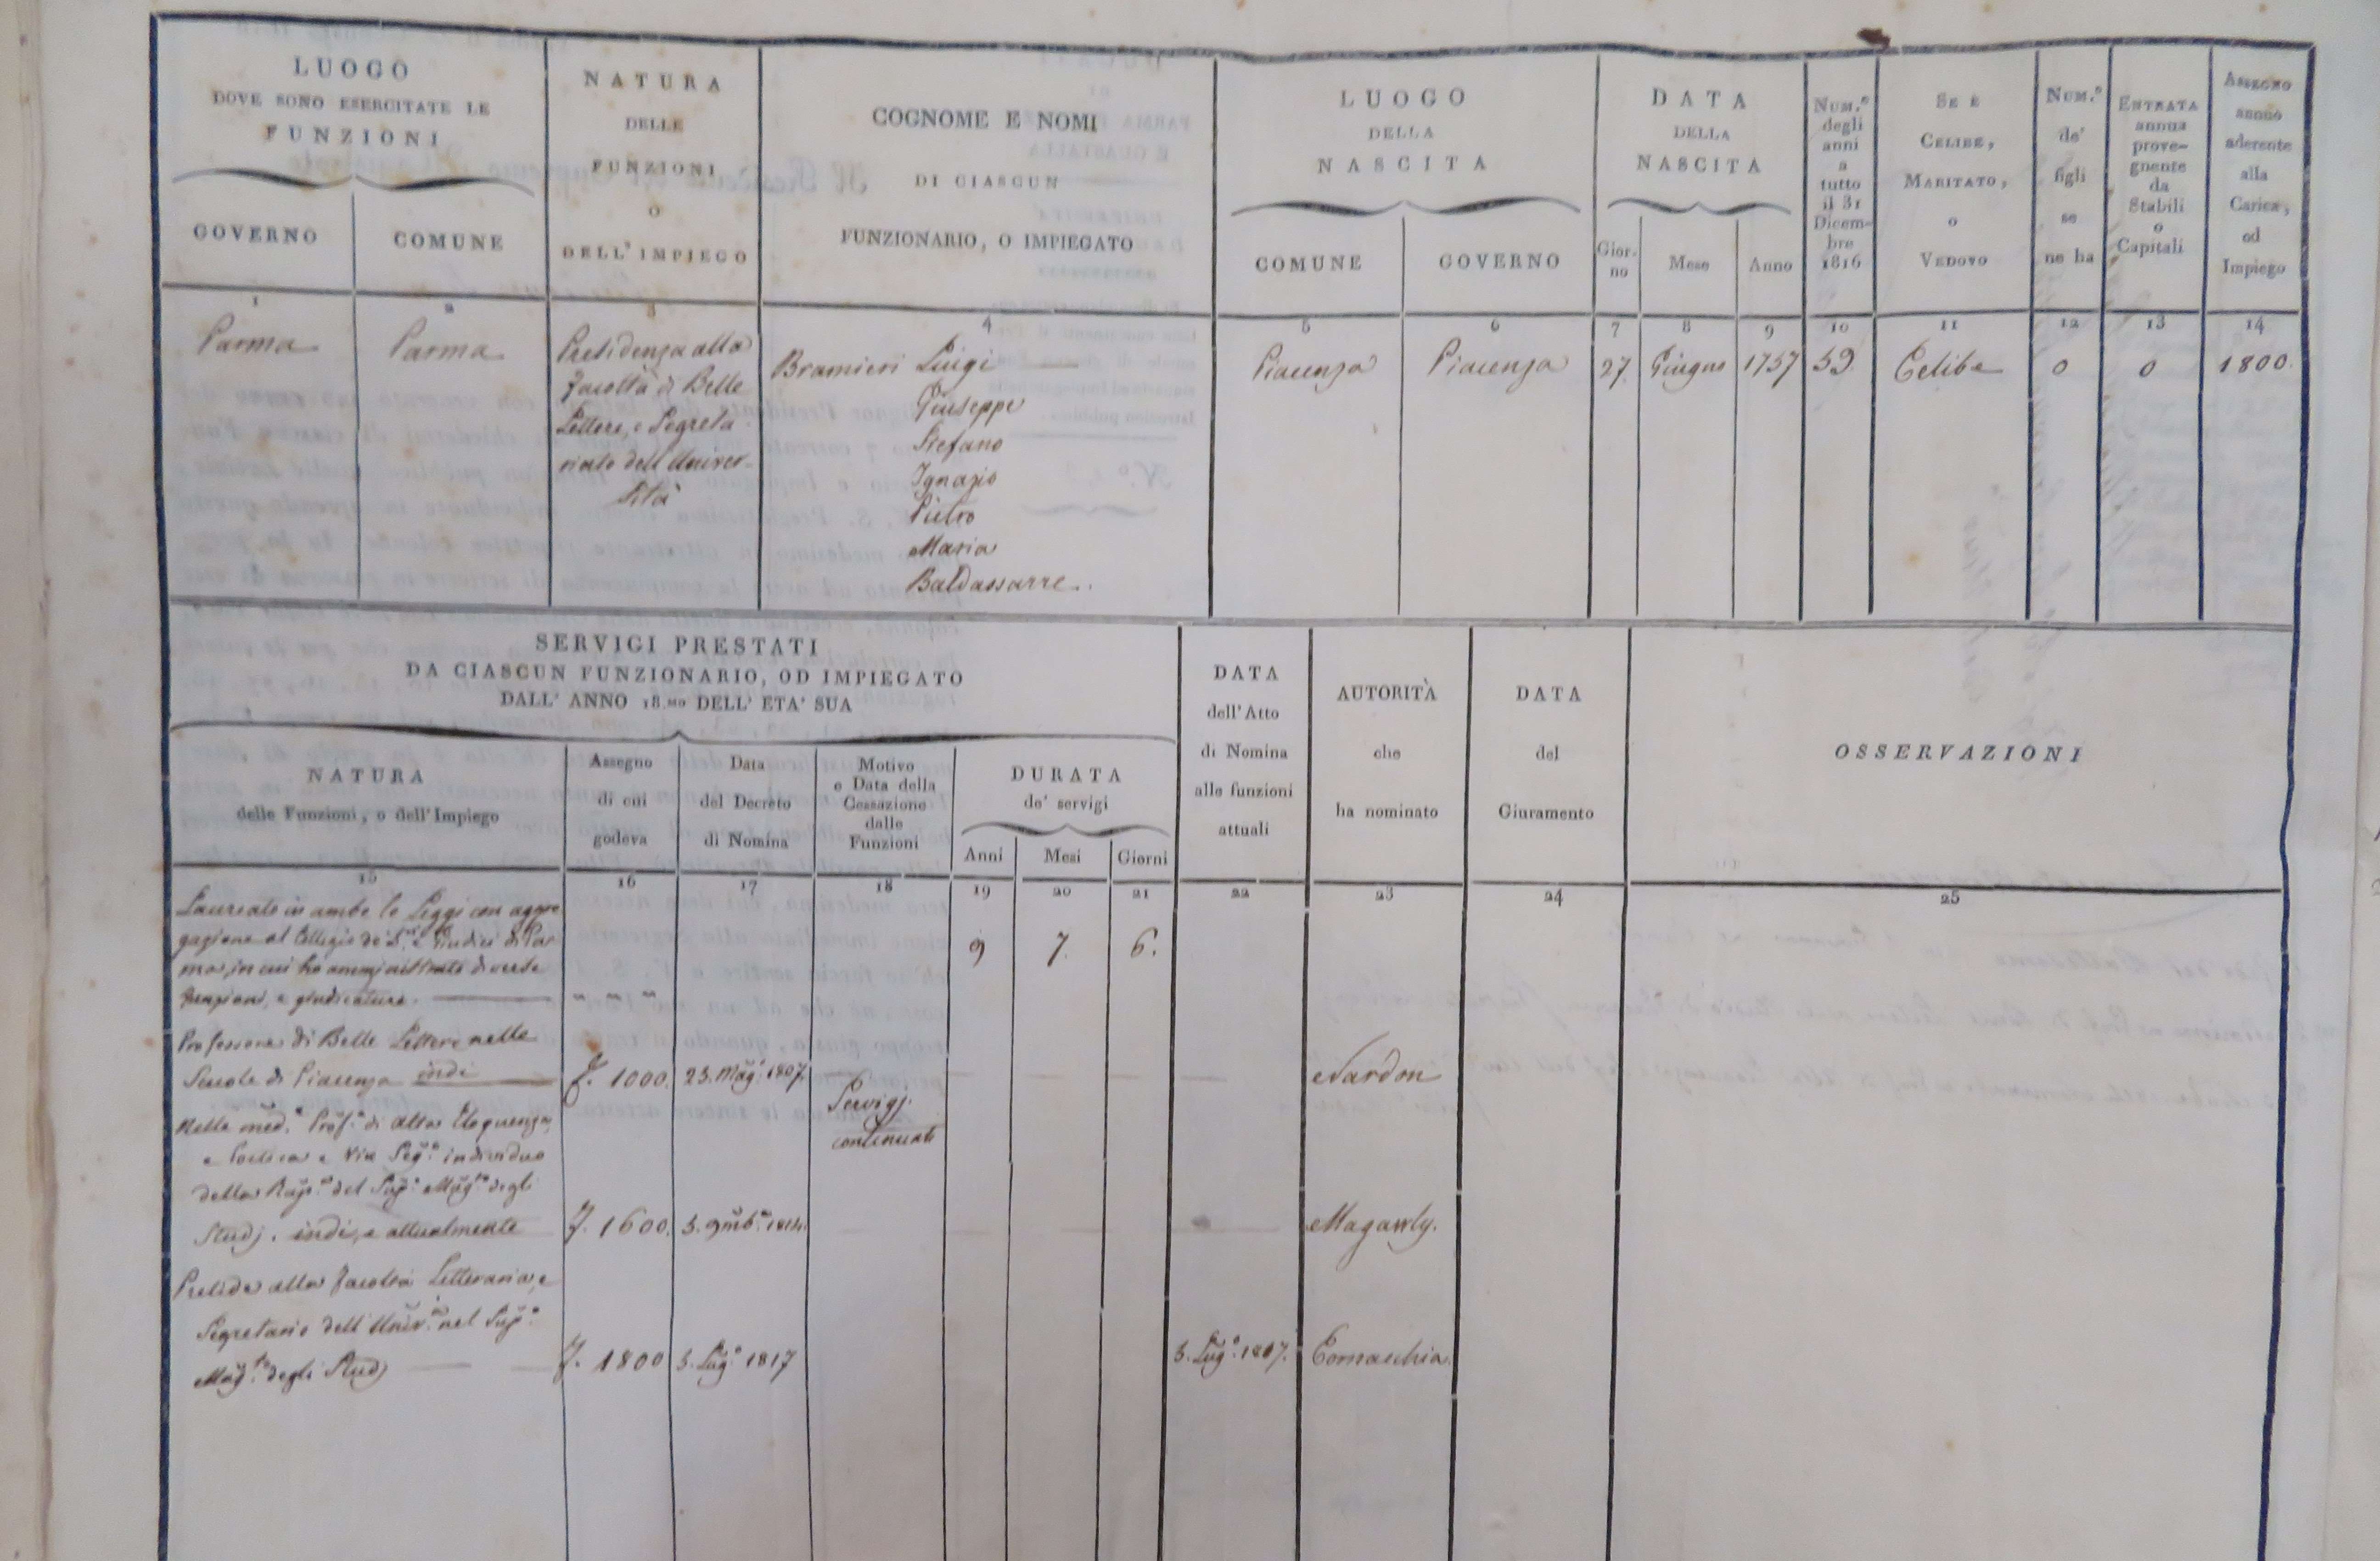 LUOGO
DOVE SONO ESERCITATE LE
FUNZIONI
GOVERNO
COMUNE
NATURA
DELLE
FUNZIONI
O
DELL' IMPIEGO
COGNOME E NOMI
DI CIASCUN
FUNZIONARIO, O IMPIEGATO
LUOGO
DELLA
NASCITA
COMUNE
GOVERNO
DATA
DELLA
NASCITA
Gior-
no
Mese
Anno
NUM.º
degli
anni
a
tutto
il 31
Dicem-
bre
1816
SE È
CELIBE,
MARITATO,
o
VEDOVO
NUM.º
de'
figli
se
ne ha
ENTRATA
annua
prove-
gnente
da
Stabili
o
Capitali
ASSEGNO
annuo
aderente
alla
Carica,
od
Impiego
1
2
3
4
5
6
7
8
9
10
11
12
13
14
Parma
Parma
Presidenza alla
Facoltà di Belle
Lettere, e Segreta-
riato dell'Univer-
sità
Bramieri Luigi
Giuseppe
Stefano
Ignazio
Pietro
Maria
Baldassarre.
Piacenza
Piacenza
27
Giugno
1757
59
Celibe
0
0
1800.
SERVIGI PRESTATI
DA CIASCUN FUNZIONARIO, OD IMPIEGATO
DALL' ANNO 18.MO DELL' ETA' SUA
NATURA
delle Funzioni, o dell'Impiego
Assegno
di cui
godeva
Data
del Decreto
di Nomina
Motivo
e Data della
Cessazione
dalle
Funzioni
DURATA
de' servigi
Anni
Mesi
Giorni
DATA
dell'Atto
di Nomina
alle funzioni
attuali
AUTORITÀ
che
ha nominato
DATA
del
Giuramento
OSSERVAZIONI
15
16
17
18
19
20
21
22
23
24
25
Laureato in ambe le Leggi con aggre
gazione al Collegio de' Giudici di Par
ma, in cui ha amministrate diverse
funzioni, e giudicature.
9
7.
6.
Professore di Belle Lettere nelle
Scuole di Piacenza indi
f. 1000.
23. Mag. 1807.
Nardon
Servigj
continuati
Nelle med.e Prof.e di alta Eloquenza,
e Poetica e Vice Seg.o individuo
della del Sup.o Mag.to degli
Studj. indi, e attualmente
f. 1600.
5. 9mb.e 1814.
Magawly.
Preside alla Facoltà Letteraria, e
Segretario dell'Univ.à nel Sup.o
Mag.to degli Studj
f. 1800
5. Lug.o 1817
5. Lug.o 1817.
Cornacchia.